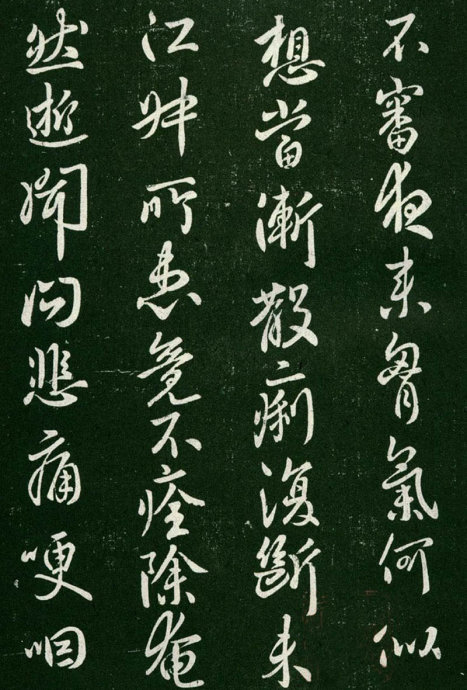 不審夜来胷氣何似
想當漸散痢復斷未
江叔所患竟不痊除奄
然逝聞問悲痛哽咽